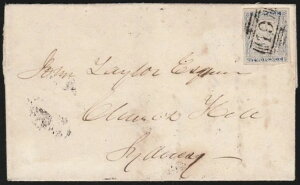 John Taylor Esqr
Church Hill
Sydney